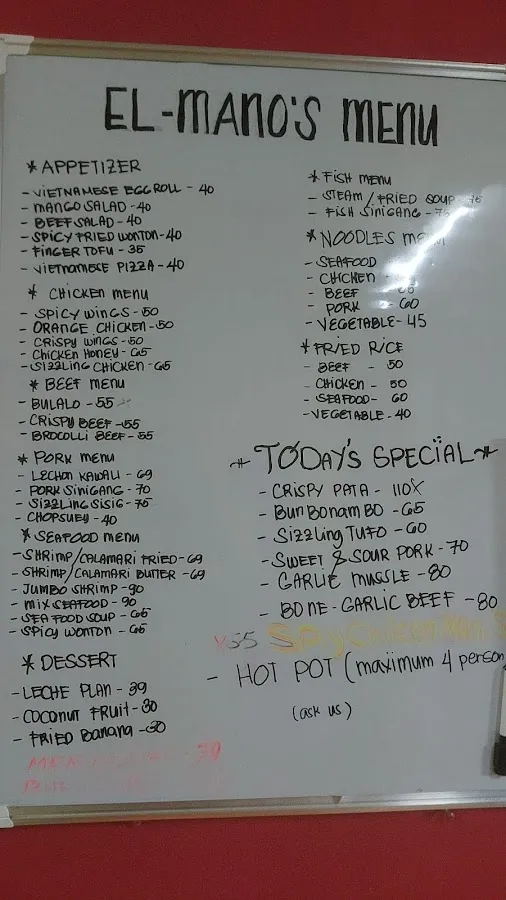 EL-MANO'S MENU
* APPETIZER
- VIETNAMESE EGG ROLL - 40
- MANGO SALAD - 40
- BEEF SALAD - 40
- SPICY FRIED WONTON - 40
- FINGER TOFU - 35
- VIETNAMESE PIZZA - 40
* CHICKEN MENU
- SPICY WINGS - 50
- ORANGE CHICKEN - 50
- CRISPY WINGS - 50
- CHICKEN HONEY - 65
- SIZZLING CHICKEN - 65
* BEEF MENU
- BULALO - 55
- CRISPY BEEF - 55
- BROCOLLI BEEF - 55
* PORK MENU
- LECHON KAWALI - 69
- PORK SINIGANG - 70
- SIZZLING SISIG - 75
- CHOPSUEY - 40
* SEAFOOD MENU
- SHRIMP/CALAMARI FRIED - 69
- SHRIMP/CALAMARI BUTTER - 69
- JUMBO SHRIMP - 90
- MIX SEAFOOD - 90
- SEA FOOD SOUP - 65
- SPICY WONTON - 65
* DESSERT
- LECHE PLAN - 39
- COCONUT FRUIT - 30
- FRIED BANANA - 30
- 39
* FISH MENU
- STEAM/FRIED SOUP
- FISH SINIGANG -
* NOODLES MENU
- SEAFOOD
- CHICKEN
- BEEF
- PORK - 60
- VEGETABLE - 45
* FRIED RICE
- BEEF - 50
- CHICKEN - 50
- SEAFOOD - 60
- VEGETABLE - 40
* TODAY'S SPECIAL *
- CRISPY PATA - 110X
- BUN BONAM BO - 65
- SIZZLING TUFO - 60
- SWEET & SOUR PORK - 70
- GARLIC MUSSLE - 80
- BONE-GARLIC BEEF - 80
55 Spicy Chicken
- HOT POT (maximum 4 person
(ask us)